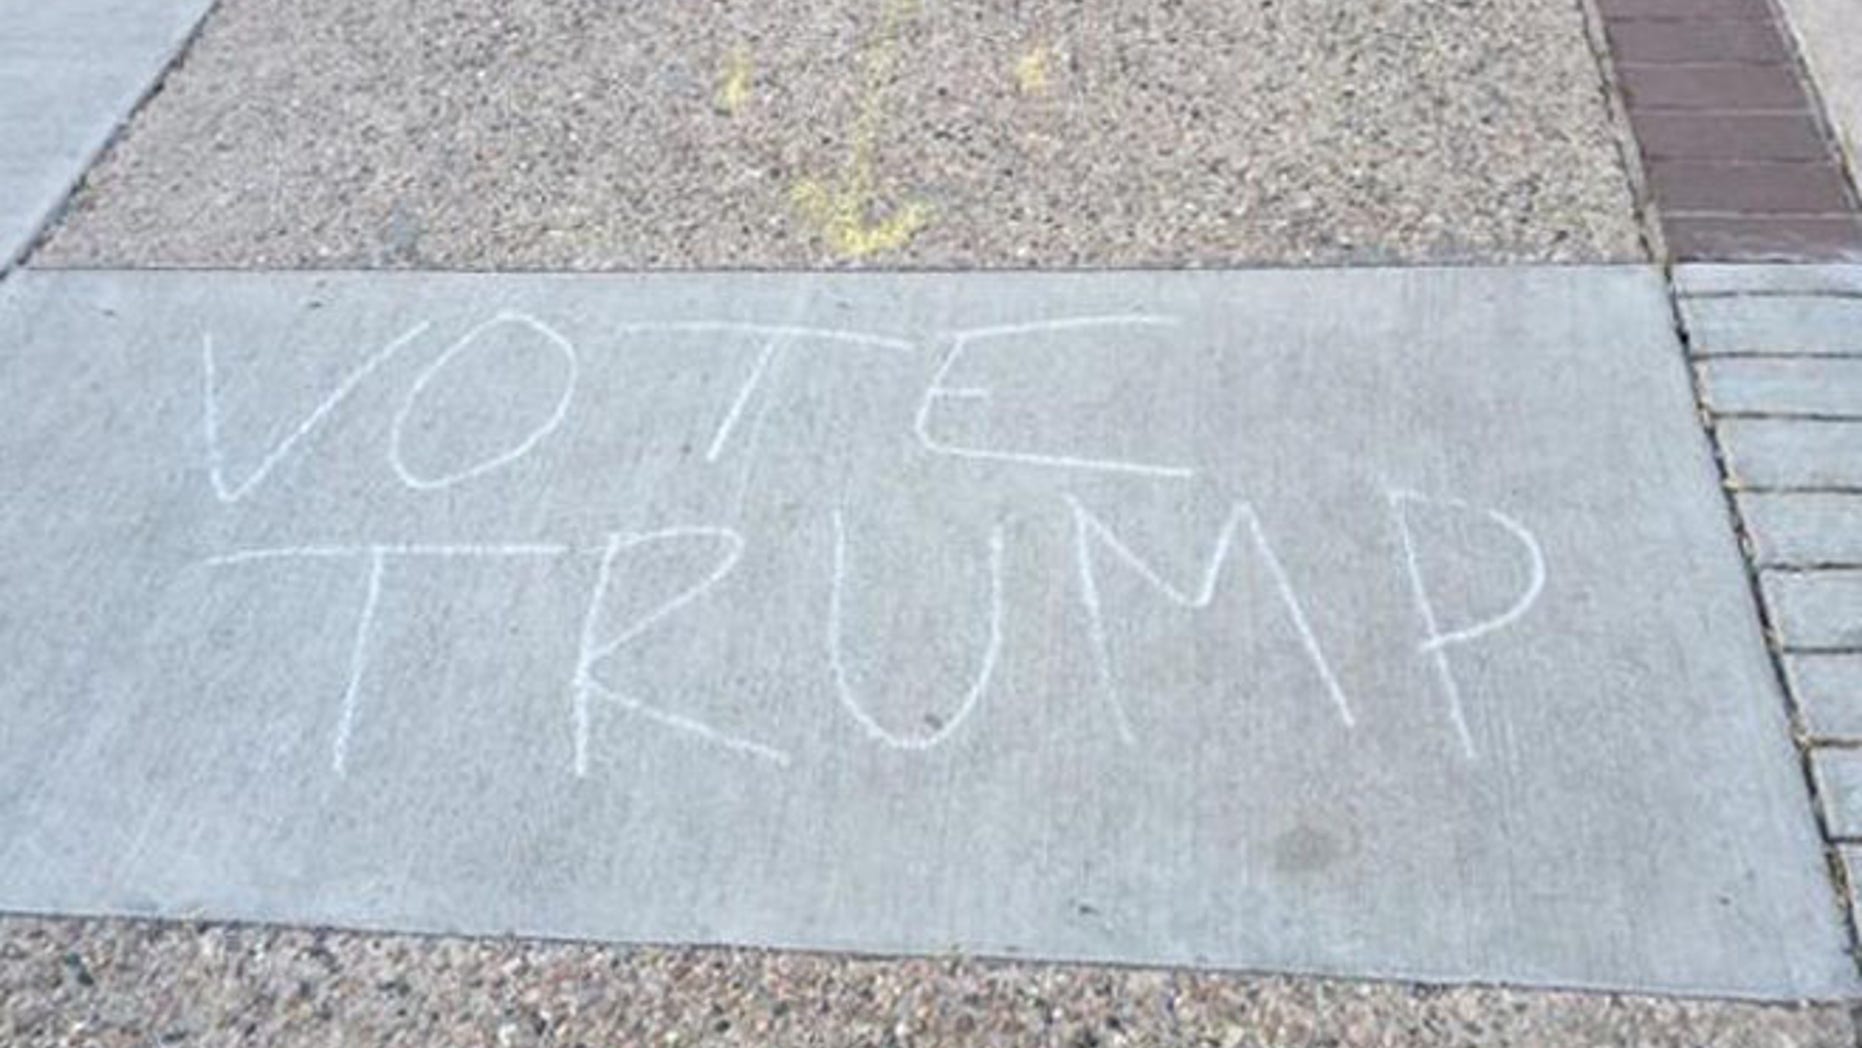 VOTE
TRUMP